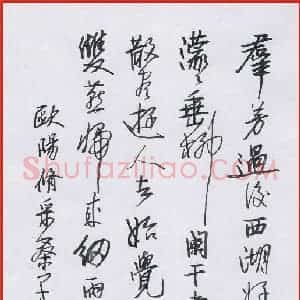 羣芳過後西湖好
濛〻垂柳闌干
散盡遊人去始覺
雙燕歸來細雨
歐陽脩采桑子
Shufaziliao.com